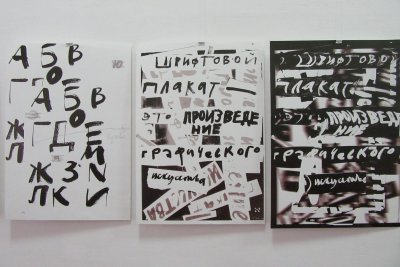 А Б В
Г О
А Б В
Ж Г Д Е
Л М
Ж З И
Л К И
ШРИФТОВОЙ
ПЛАКАТ
ЭТО
ПРОИЗВЕДЕ
НИЕ
ГРАФИЧЕСКОГО
искусства
ШРИФТОВОЙ
ПЛАКАТ
ЭТО
ПРОИЗВЕДЕ
НИЕ
ГРАФИЧЕСКОГО
искусства